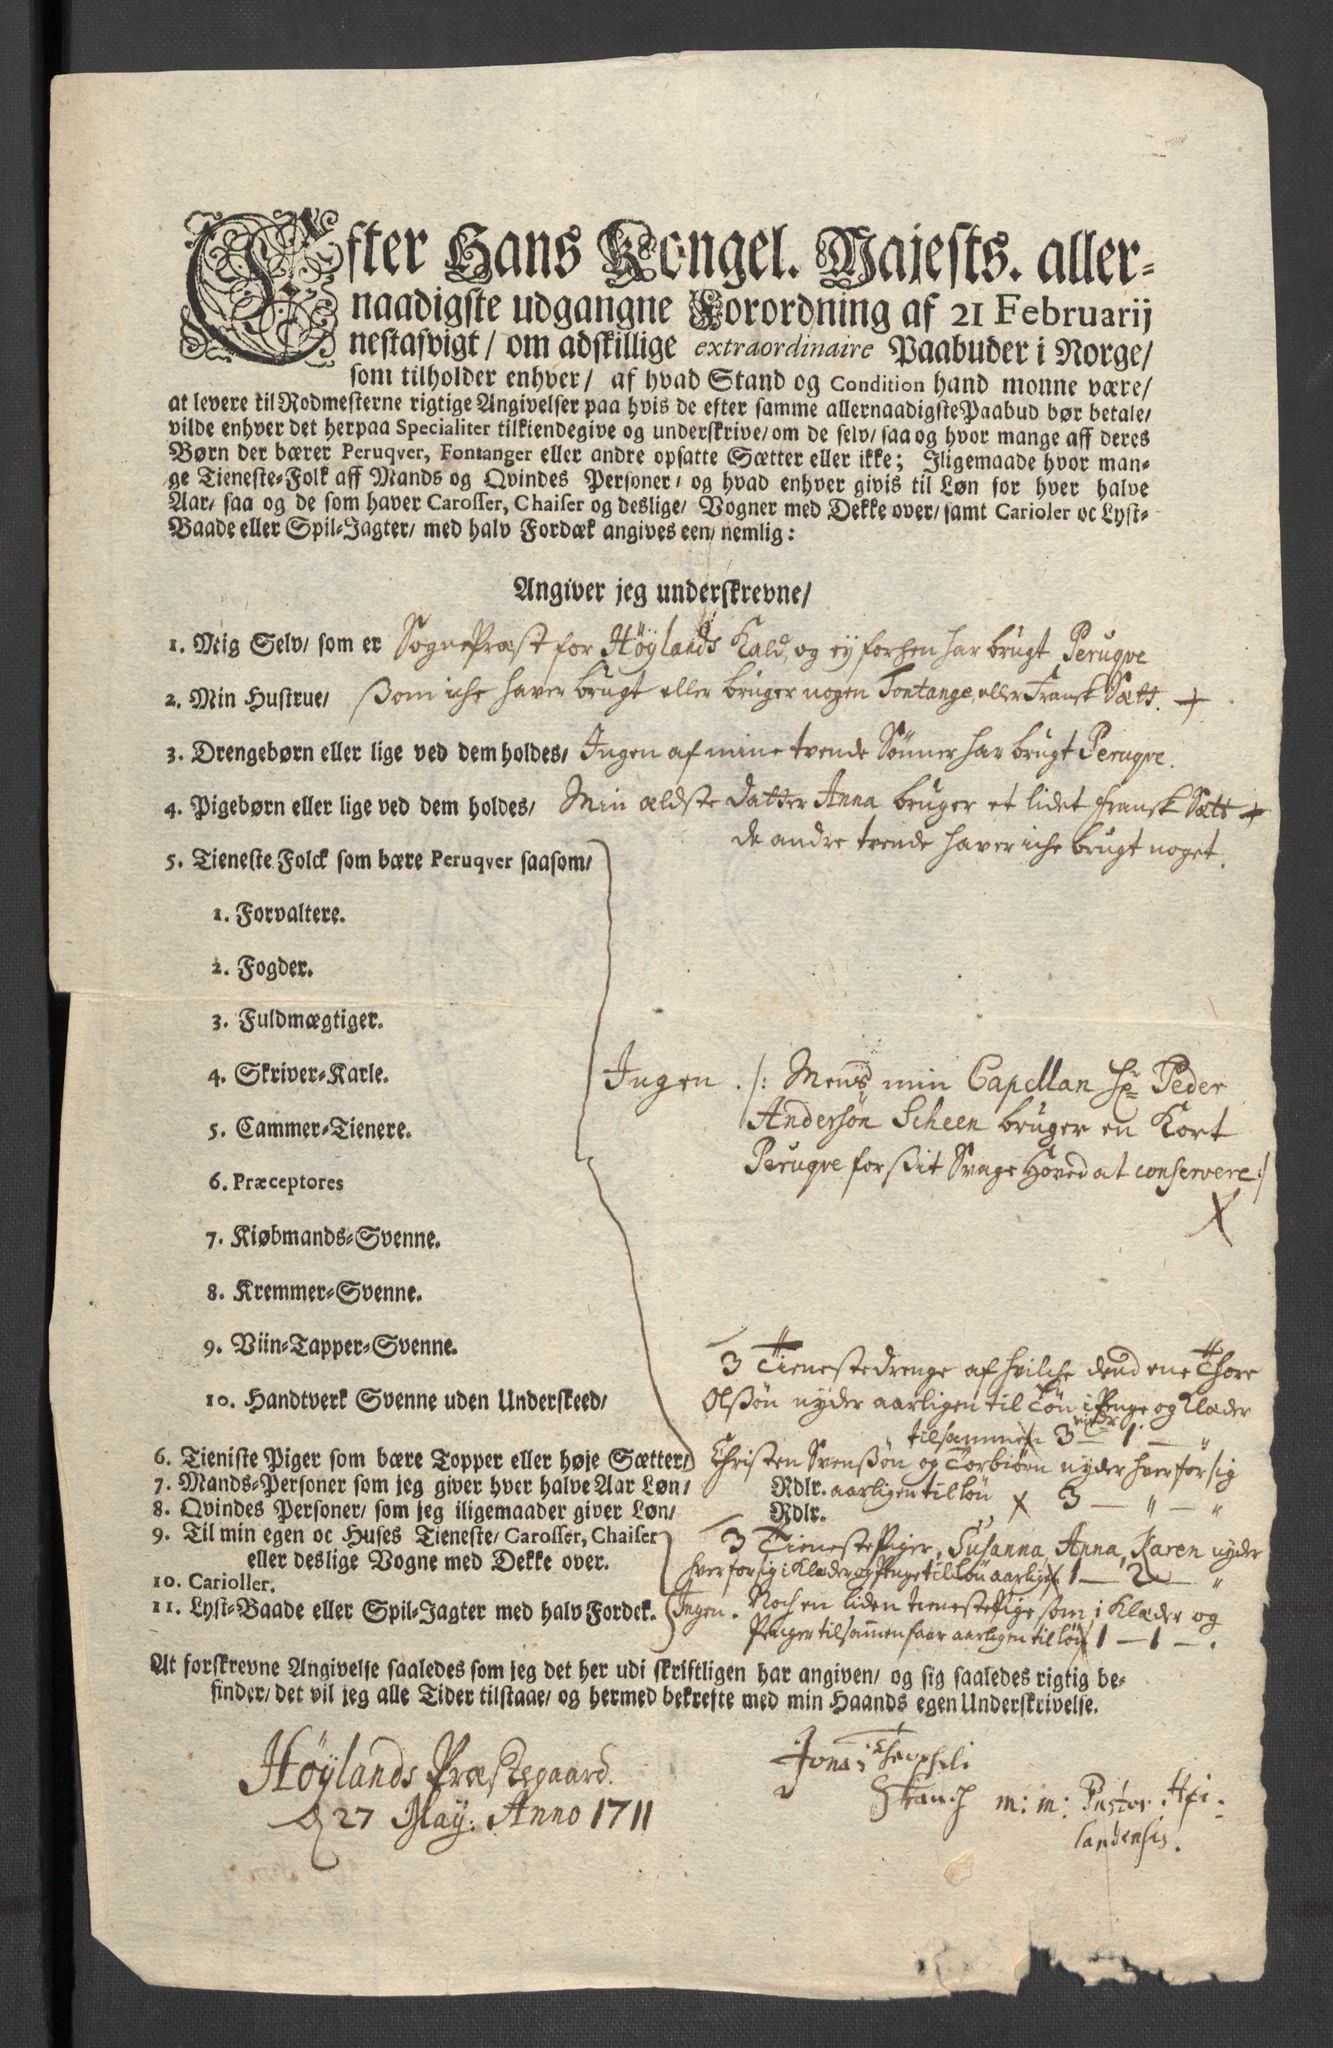 Efter Hans Kongel. Majests. aller-
naadigste udgangne Forordning af 21 Februarij
nestafvigt/ om adskillige extraordinaire Paabuder i Norge/
som tilholder enhver/ af hvad Stand og Condition hand monne være/
at levere til Rodmesterne rigtige Angivelser paa hvis de efter samme allernaadigste Paabud bør betale/
vilde enhver det herpaa Specialiter tilkiendegive og underskrive/ om de selv/ saa og hvor mange aff deres
Børn der bærer Peruqver, Fontanger eller andre opsatte Sætter eller ikke; Iligemaade hvor man-
ge Tieneste-Folk aff Mands og Qvindes Personer/ og hvad enhver givis til Løn for hver halve
Aar/ saa og de som haver Carosser, Chaiser og deslige/ Vogner med Dekke over/ samt Carioler oc Lyst-
Baade eller Spil-Jagter/ med halv Fordæk angives een/ nemlig:
Angiver jeg underskrevne/
1. Mig Selv/ som er SognePræst for Höylands Kald, og ey forhen har brugt Peruqve
2. Min Hustrue/ Som iche haver brugt eller bruger nogen Fontange, eller Fransk Sætt. +
3. Drengebørn eller lige ved dem holdes/ Ingen af mine tvende Sönner har brugt Peruqve.
4. Pigebørn eller lige ved dem holdes/ Min ældste datter Anna bruger et lidet fransk Sætt +
de andre tvende haver iche brugt noget.
5. Tieneste Folck som bære Peruqver saasom/
1. Forvaltere.
2. Fogder.
3. Fuldmægtiger.
4. Skriver-Karle. Ingen. /: Mens min Capellan Hr Peder
Andersön Scheen bruger en Kort
5. Cammer-Tienere.
Peruqve for sit Svage Hoved at conservere :/
6. Præceptores
X
7. Kiøbmands-Svenne.
8. Kremmer-Svenne.
9. Viin-Tapper-Svenne.
3 Tienestedrenge af hvilche dend ene Thore
10. Handtverk Svenne uden Underskeed/ Olssön nyder aarligen til Lön i Penge og Klæder
tilsammen 3 – 1 –
6. Tieniste Piger som bære Topper eller høje Sætter/ Christen Svenssön og Torbiörn nyder hver for sig
7. Mands-Personer som jeg giver hver halve Aar Løn/ Rdlr. aarligen til lön X 3 – " – "
8. Qvindes Personer/ som jeg iligemaader giver Løn/ Rdlr.
9. Til min egen oc Huses Tieneste/ Carosser, Chaiser 3 TienestePiger, Susanna, Anna, Karen nyder
eller deslige Vogne med Dekke over. hver for sig i Klæder og Penge til lön aarligen 1 – 2 – "
10. Carioller.
11. Lyst-Baade eller Spil-Jagter med halv Fordek. Ingen. Noch en liden tienestePige som i Klæder og
Penger tilsammen faar aarligen til lön 1 – 1 – .
At forskrevne Angivelse saaledes som jeg det her udi skriftligen har angiven/ og sig saaledes rigtig be-
finder/ det vil jeg alle Tider tilstaae/ og hermed bekrefte med min Haands egen Underskrivelse.
Höylands Præstegaard.
d 27 May. Anno 1711
Jonas Theophili
Skanch m: m: Pastor
landensis.